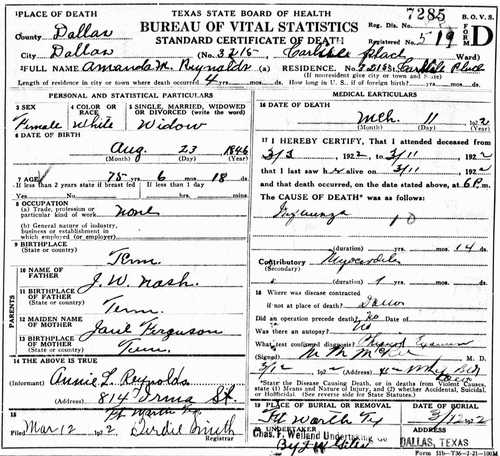 1 PLACE OF DEATH
TEXAS STATE BOARD OF HEALTH
BUREAU OF VITAL STATISTICS
STANDARD CERTIFICATE OF DEATH
7285 B.O.V.S.
Reg. Dis. No.
FORM D
Registered No. 519
County Dallas
City Dallas
(No. 3216 Carlisle place Ward)
2 FULL NAME Amanda M. Reynolds RESIDENCE. No. Carlisle Place
(If nonresident give city or town and State)
Length of residence in city or town where death occurred 4 yrs. mos. ds. How long in U. S., if of foreign birth? yrs. mos. ds.
PERSONAL AND STATISTICAL PARTICULARS
3 SEX
Female
4 COLOR OR RACE
White
5 SINGLE, MARRIED, WIDOWED OR DIVORCED (write the word)
Widow
6 DATE OF BIRTH
Aug 23 1846
(Month) (Day) (Year)
7 AGE 75 yrs. 6 mos. 18 ds.
If less than 2 years state if breast fed
If less than 1 day
8 OCCUPATION
(a) Trade, profession or particular kind of work
none
(b) General nature of industry, business or establishment in which employed (or employer)
9 BIRTHPLACE
(State or country)
Tenn
PARENTS
10 NAME OF FATHER
J. W. Nash
11 BIRTHPLACE OF FATHER
(State or country)
Tenn.
12 MAIDEN NAME OF MOTHER
Jane Ferguson
13 BIRTHPLACE OF MOTHER
(State or country)
Tenn.
14 THE ABOVE IS TRUE
(Informant) Annie L. Reynolds
(Address) 814 Irma St.
Ft Worth Tex
15
Filed Mar 12 1922 Registrar
MEDICAL PARTICULARS
16 DATE OF DEATH
Mch 11 1922
(Month) (Day) (Year)
17 I HEREBY CERTIFY, That I attended deceased from
3/3 1922 3/11 1922
that I last saw h alive on 3/11 1922
and that death occurred, on the date stated above, at 6 P.m.
The CAUSE OF DEATH* was as follows:
Influenza 10
(duration) yrs. mos. 14 ds.
Contributory Myocarditis
(Secondary)
(duration) 1 yrs. mos. ds.
18 Where was disease contracted
if not at place of death? Dallas
Did an operation precede death? No
Was there an autopsy? No
What test confirmed diagnosis? Physical
(Signed) M. D.
3/12 1922 (Address)
*State the Disease Causing Death, or in deaths from Violent Causes, state 1) Means and Nature of Injury, and (2) whether Accidental, Suicidal, or Homicidal. (See reverse side for State Statute).
19 PLACE OF BURIAL OR REMOVAL
Ft. Worth Tex
DATE OF BURIAL
3/12 1922
20 UNDERTAKER
Chas. F. Weiland Undertaking Co
DALLAS, TEXAS